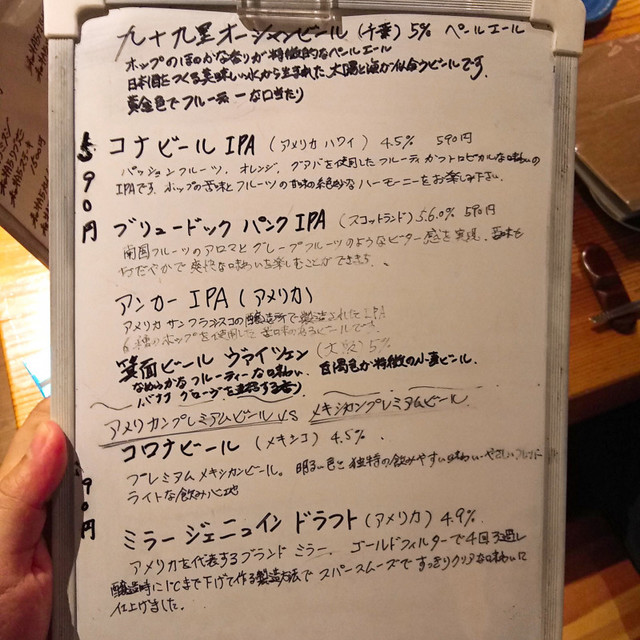 九十九里オーシャンビール (千葉) 5% ペールエール
ホップのほのかな香りが特徴的なペールエール
日本酒をつくる美味しい水から生まれた、太陽と海が似合うビールです。
黄金色でフルーティーな口当たり
590円
コナビール IPA (アメリカ ハワイ) 4.5% 590円
パッションフルーツ、オレンジ、グアバを使用したフルーティかつトロピカルな味わいの
IPAです。ホップの苦味とフルーツの甘味の絶妙なハーモニーをお楽しみ下さい。
ブリュードック パンクIPA (スコットランド) 5.6.0% 590円
南国フルーツのアロマとグレープフルーツのようなビター感を実現、苦味も
で爽快な味わいを楽しむことができます。
アンカー IPA (アメリカ)
アメリカ サンフランシスコの醸造所で製造されたIPA
6種のホップを使用した苦味のあるビールです。
箕面ビール ヴァイツェン (大阪) 5%
なめらかなフルーティーな味わい、白濁色が特徴の小麦ビール。
バナナ クローブを
アメリカンプレミアムビール VS メキシカンプレミアムビール
コロナビール (メキシコ) 4.5%、
プレミアムメキシカンビール。明るい色と独特の飲みやすい味わい・やさしい
ライトな飲み心地
90円
ミラー ジェニュイン ドラフト (アメリカ) 4.9%
アメリカを代表するブランド ミラー、ゴールドフィルターで4回ろ過し
醸造時に1℃まで下げて作る製造方法で スパースムーズで すっきりクリアな味わいに
仕上げました。